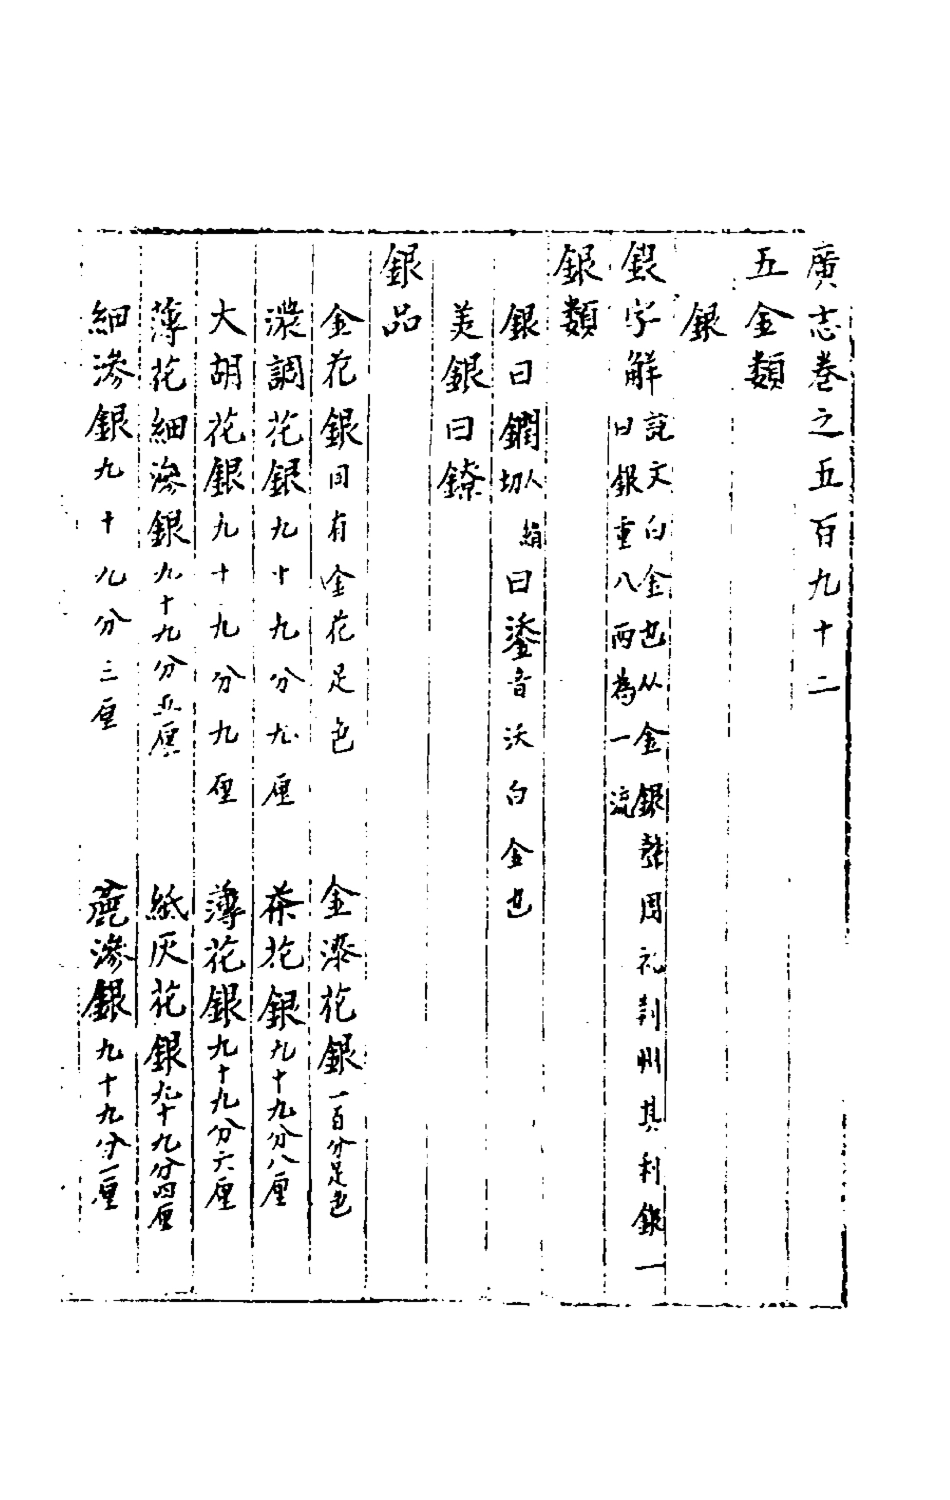 廣志卷之五百九十二
五金類
銀
銀字解說文白金也从金銀聲周礼荆州其利銀一曰銀重八两為一流
銀類
銀曰鐗切人絹曰鋈音沃白金也
美銀曰鐐
銀品
金花銀因有金花足色 金漆花銀一百分足色
濃調花銀九十九分九厘 茶花銀九十九分八厘
大胡花銀九十九分九厘 薄花銀九十九分六厘
薄花細滲銀九十九分五厘 紙灰花銀九十九分四厘
細滲銀九十九分三厘 麄滲銀九十九分一厘